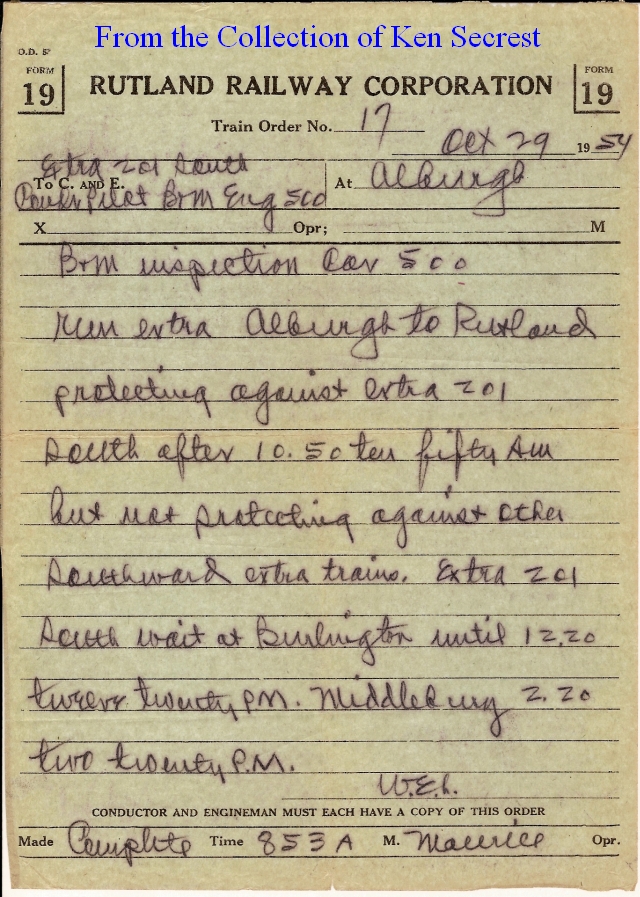 From the Collection of Ken Secrest
O.D. 5'
FORM 19
RUTLAND RAILWAY CORPORATION
FORM 19
Train Order No. 17
Oct 29 1954
Extra 201 South
To C. AND E.
Pilot B+M Eng 500
At Alburgh
X Opr; M
B+M inspection Car 500
run extra Alburgh to Rutland
protecting against extra 201
South after 10.50 ten fifty Am
but not protecting against other
Southward extra trains. Extra 201
South wait at Burlington until 12.20
twelve twenty P.M. Middlebury 2.20
two twenty P.M.
W.E.L.
CONDUCTOR AND ENGINEMAN MUST EACH HAVE A COPY OF THIS ORDER
Made Complete Time 853 A M. Maurice Opr.